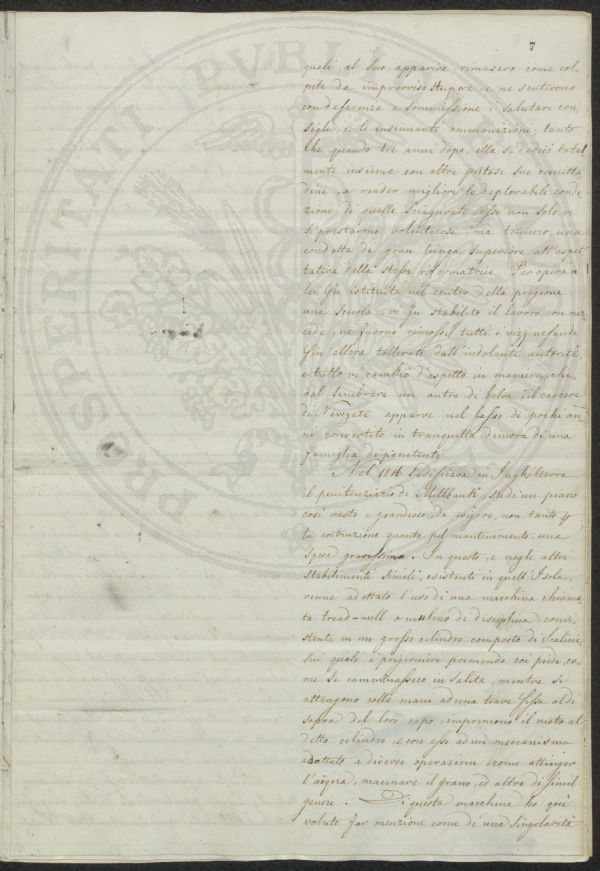 7
quali, al suo apparire, rimasero come col-
pite da improvviso stupore, e ne sentirono
con deferenza e sommissione i salutari con-
sigli, e le insinuanti ammonizioni; tanto
che quando tre anni dopo, ella si dedicò total
mente insieme con altre pietose sue concitta
dine, a render migliori le deplorabili condi
zioni di quelle sciagurate esse non solo vi
si prestarono volenterose, ma tennero una
condotta di gran lunga superiore all'aspet
tativa della stessa riformatrice. Per opera di
lei fu istituita nel centro della prigione
una scuola, vi fu stabilito il lavoro con mer
cede, ne furono rimossi tutti i vizj nefandi
fin allora tollerati dall'indolente autorità
e tutto vi cambiò d'aspetto in maniera, che
dal sembrare un antro di belve, il carcere
di Newgate apparve nel lasso di pochi an
ni convertito in tranquilla dimora di una
famiglia di penitenti.
Nel 1816 s'edificava in Inghilterra
il penitenziario di Millbank, su di un piano
così vasto e grandioso, da esigere, non tanto per
la costruzione quanto pel mantenimento, una
spesa gravissima. In questo, e negli altri
stabilimenti simili, esistenti in quell'Isola,
venne adottato l'uso di una macchina chiama
ta tread-mill o mulino di disciplina, consi-
stente in un grosso cilindro composto di scalini
sui quali i prigionieri premendo coi piedi, co
me se camminassero in salita, mentre si
attengono colle mani ad una trave fissa al di
sopra del loro capo, imprimono il moto al
detto cilindro, e con esso ad un meccanismo
adattato a diverse operazioni come attinger
l'acqua, macinare il grano, ed altre di simil
genere. Di questa macchina ho qui
voluto far menzione come di una singolarità
PUBLI